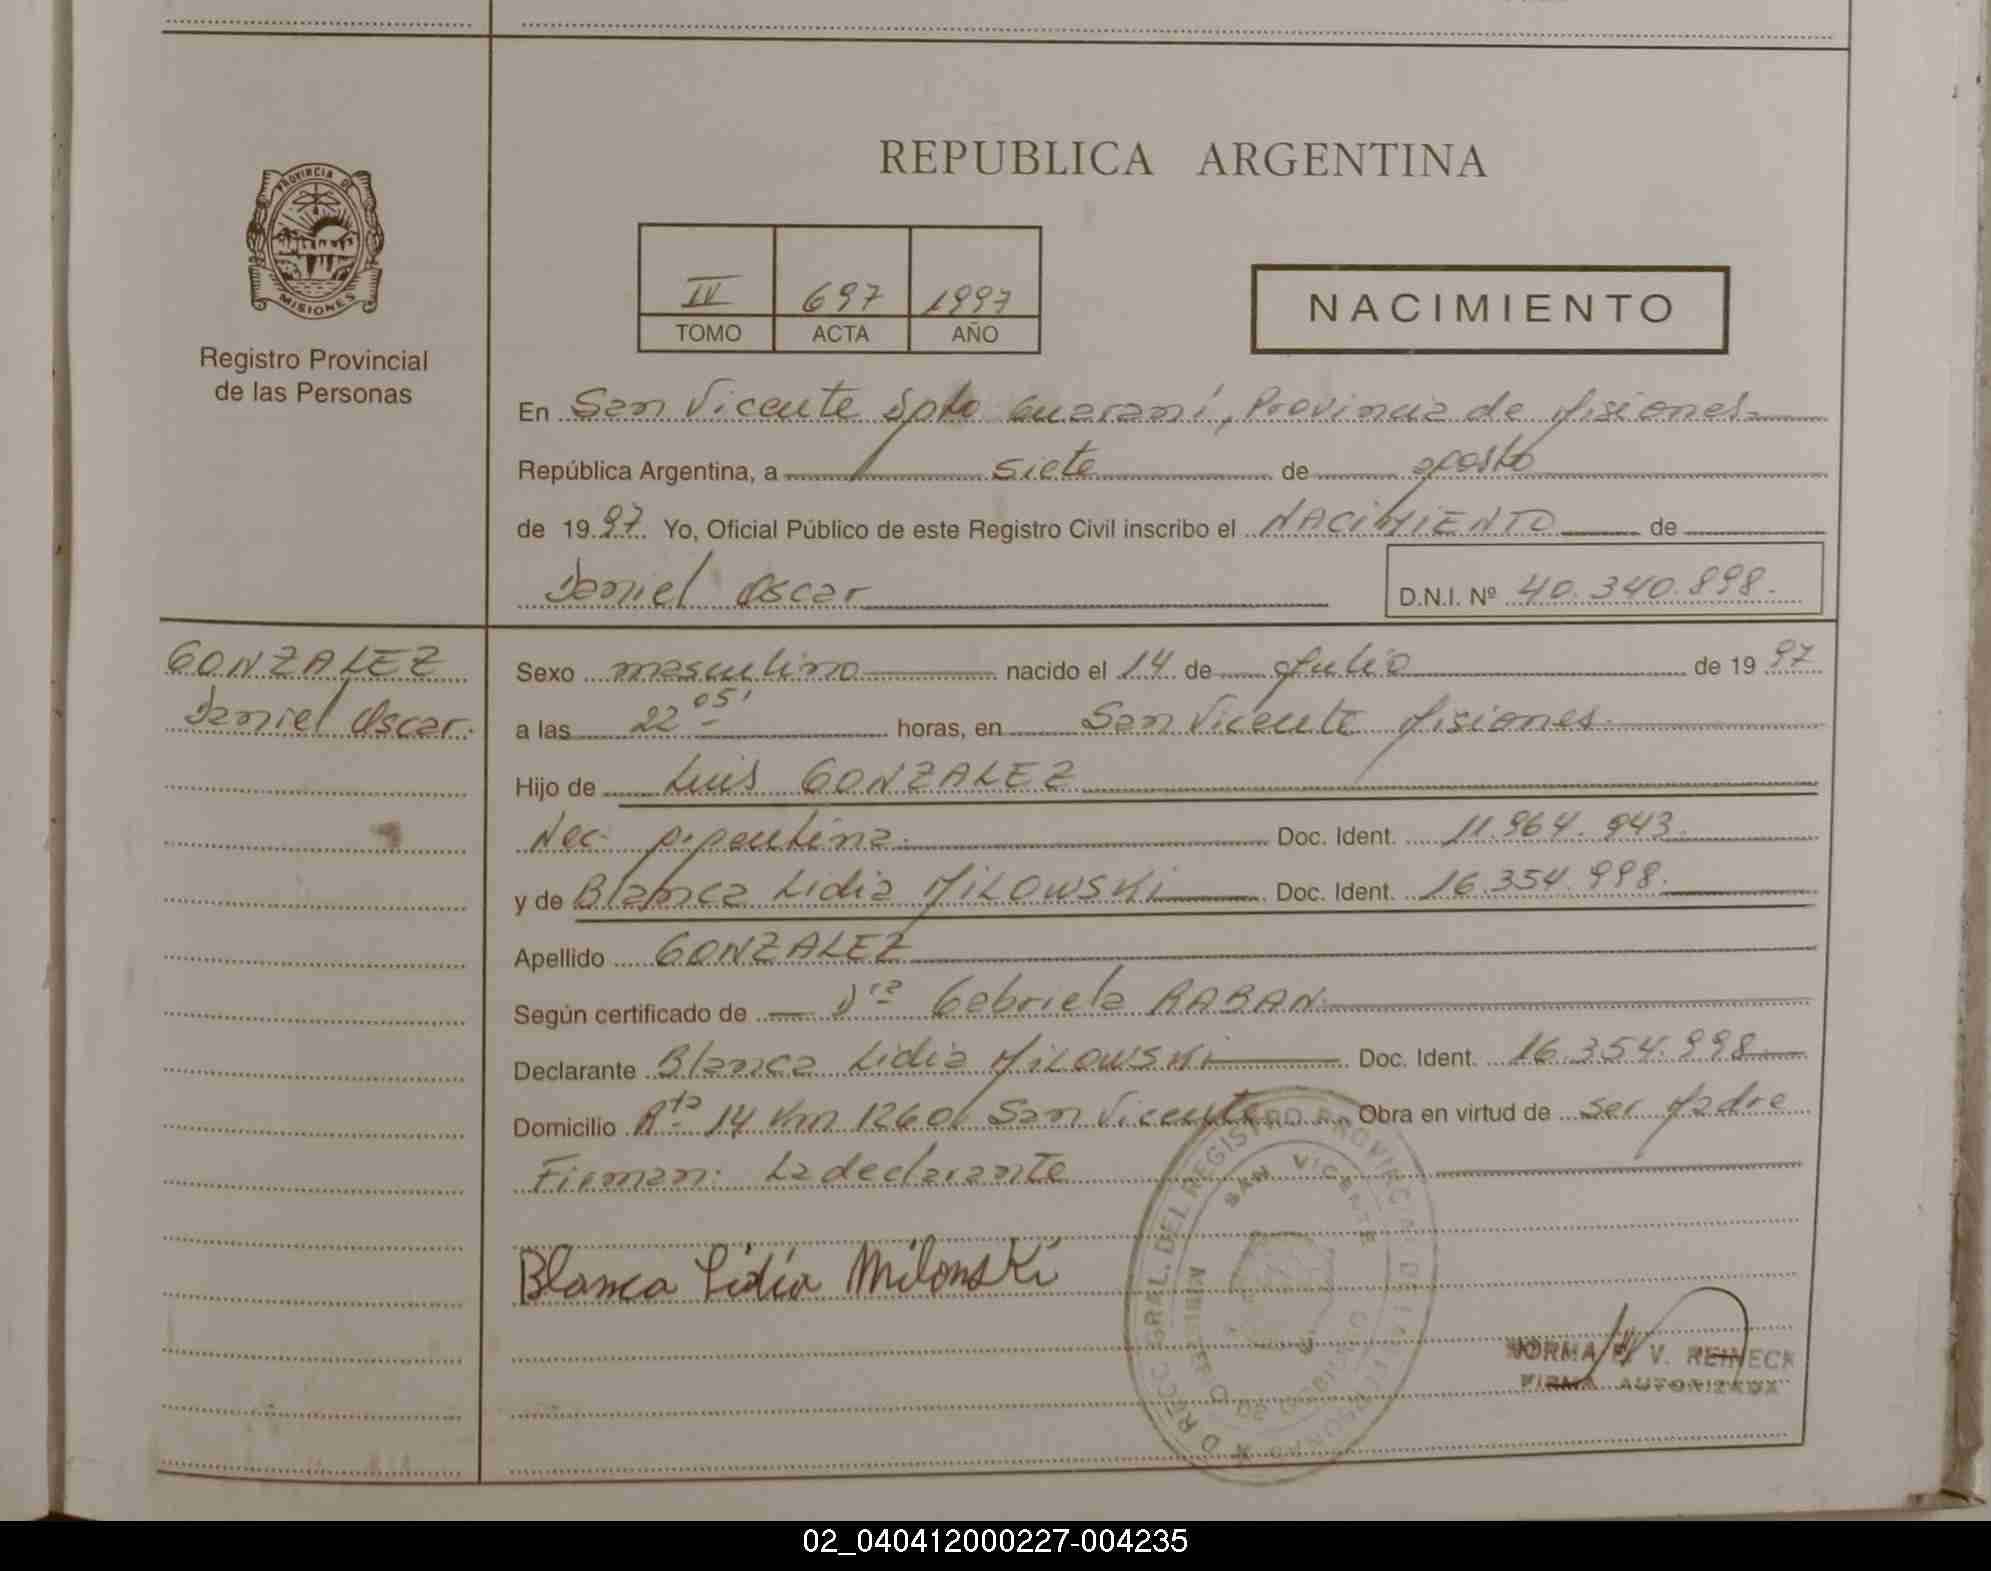 REPUBLICA ARGENTINA
PROVINCIA DE
MISIONES
Registro Provincial
de las Personas
IV 697 1997
TOMO ACTA AÑO
NACIMIENTO
En San Vicente Dpto Guaraní, Provincia de Misiones
República Argentina, a siete de agosto
de 1997. Yo, Oficial Público de este Registro Civil inscribo el NACIMIENTO de
Daniel Oscar D.N.I. Nº 40.340.898.
GONZALEZ
Daniel Oscar.
Sexo masculino nacido el 14 de Julio de 1997
a las 22 05' horas, en San Vicente Misiones
Hijo de Luis GONZALEZ
Nac. Argentina Doc. Ident. 11.964.943.
y de Blanca Lidia MILOWSKI Doc. Ident. 16.354.998.
Apellido GONZALEZ
Según certificado de Dra Gabriela RABAN
Declarante Blanca Lidia MILOWSKI Doc. Ident. 16.354.998
Domicilio Rta 14 Km 1260 San Vicente Obra en virtud de ser Madre
Firman: La declarante
Blanca Lidia Milowski
GRAL. DEL REGISTRO PROVINCIAL DE LAS PERSONAS
SAN VICENTE
MISIONES
NORMA E. V. REINECK
FIRMA AUTORIZADA
02_040412000227-004235